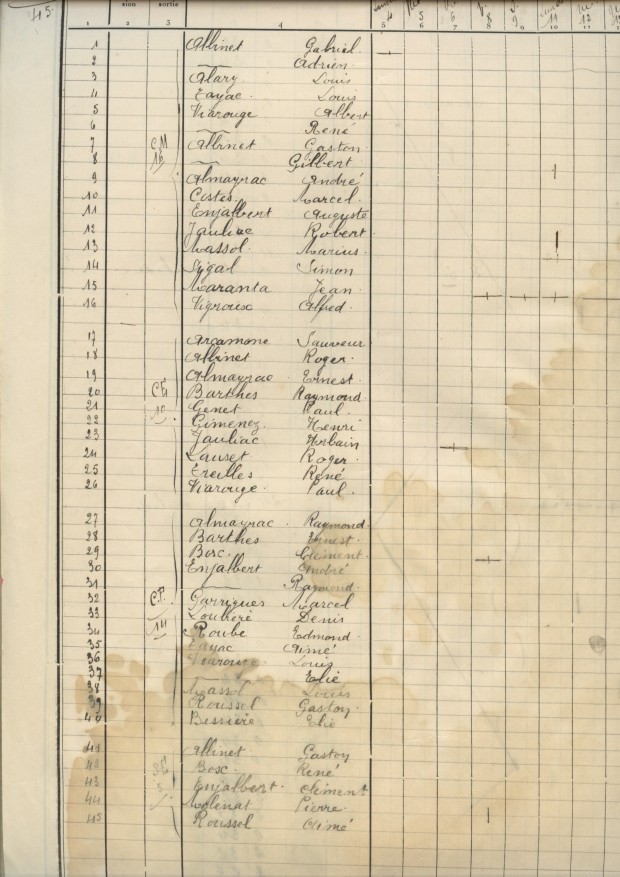 45
sion sortie
1 2 3 4 5 6 7 8 9 10 11 12
1 Albinet Gabriel
2 — Adrien
3 Alary Louis
4 Fayac Louis
5 Viarouge Albert
6 — René
7 CM Albinet Gaston
8 16 — Gilbert
9 Almayrac André
10 Costes Marcel
11 Enjalbert Auguste
12 Jauliac Robert
13 Massol Marius
14 Sigal Simon
15 Maranta Jean
16 Vigroux Alfred
17 Arcamone Sauveur
18 Albinet Roger
19 Almayrac Ernest
20 CE Barthes Raymond
21 10 Genet Paul
22 Gimenez Henri
23 Jauliac Urbain
24 Lauset Roger
25 Ereilles René
26 Viarouge Paul
27 Almayrac Raymond
28 Barthes Ernest
29 Bosc Clément
30 Enjalbert André
31 — Raymond
32 C.P. Garrigues Marcel
33 Loubière Denis
34 14 Roube Edmond
35 Fayac Aimé
36 Viarouge Louis
37 — Elie
38 Massol Louis
39 Roussel Gaston
40 Bessière Elie
41 Albinet Gaston
42 SE Bosc René
43 5 Enjalbert Clément
44 Molénat Pierre
45 Roussel Aimé